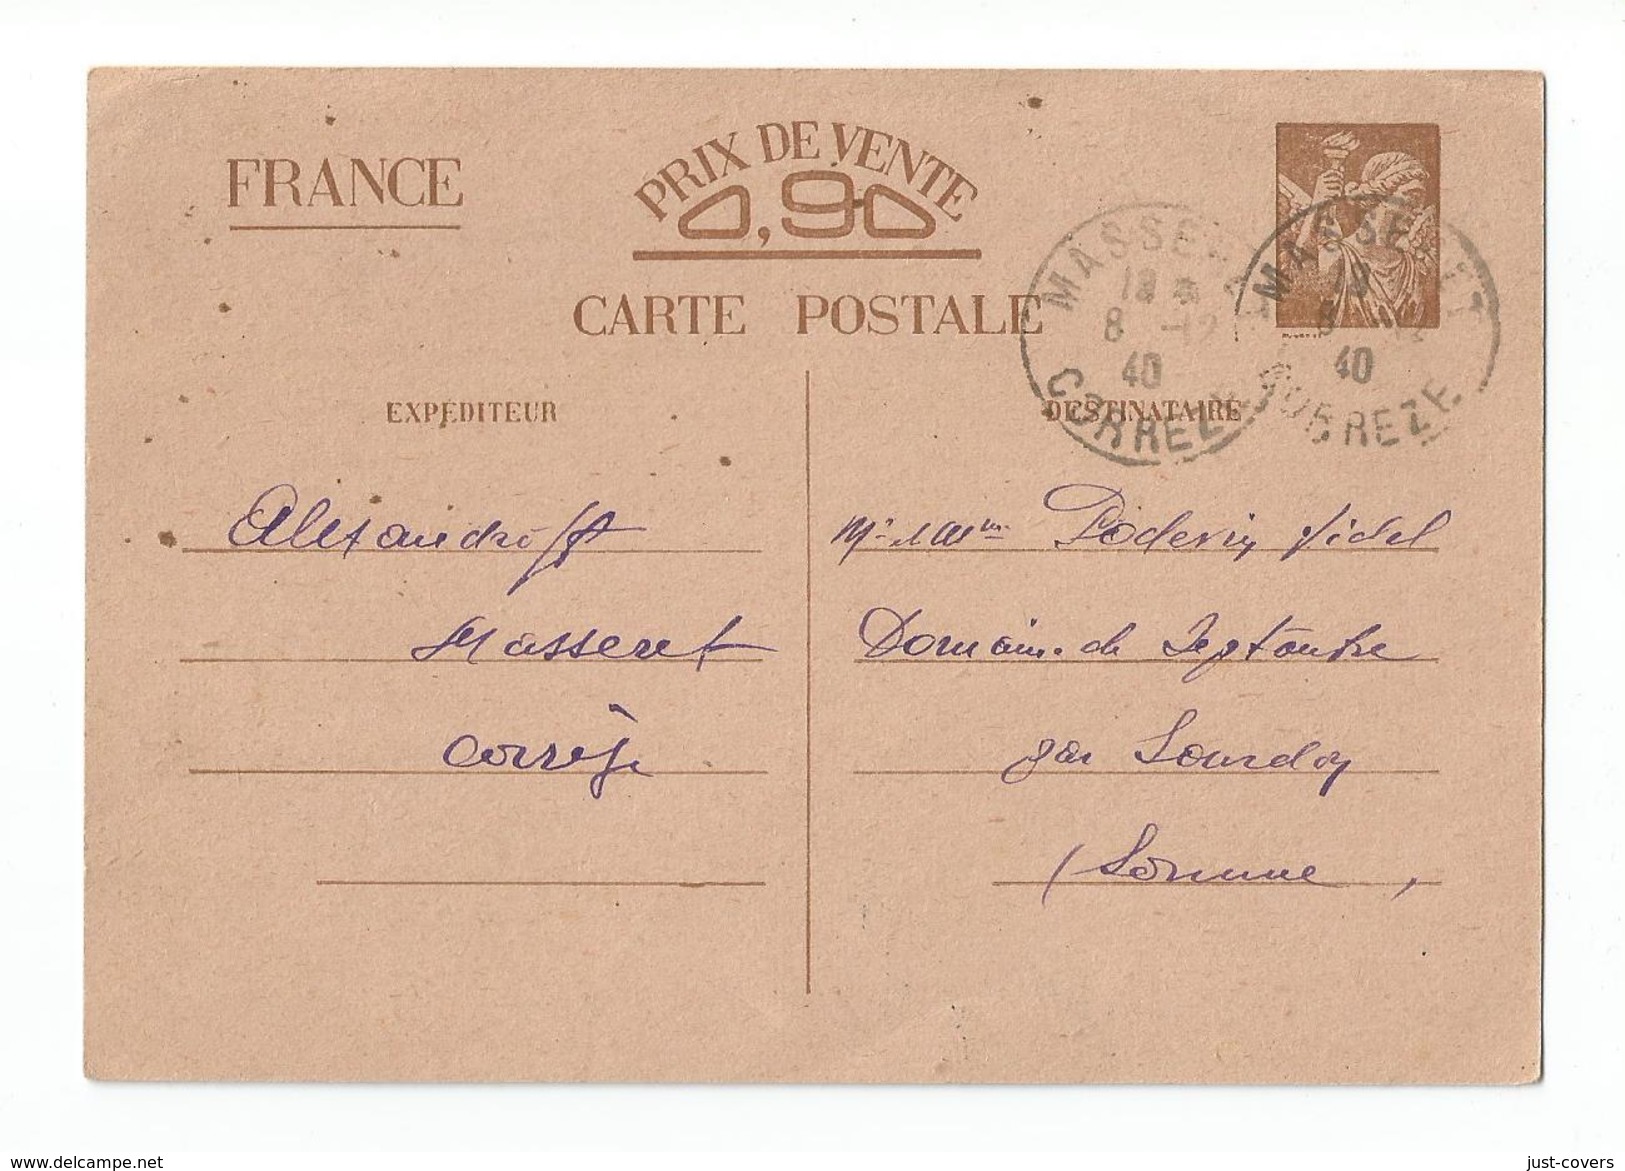 FRANCE
PRIX DE VENTE
0,90
CARTE POSTALE
MASSERET
18
8 -12
40
CORREZE
MASSERET
18
8 -12
40
CORREZE
EXPÉDITEUR
DESTINATAIRE
Alexandroff
Masseret
Corrèze
Mr et Mme Poderin Vidal
Domaine de
par Sourdon
(Somme)
www.delcampe.net
just-covers